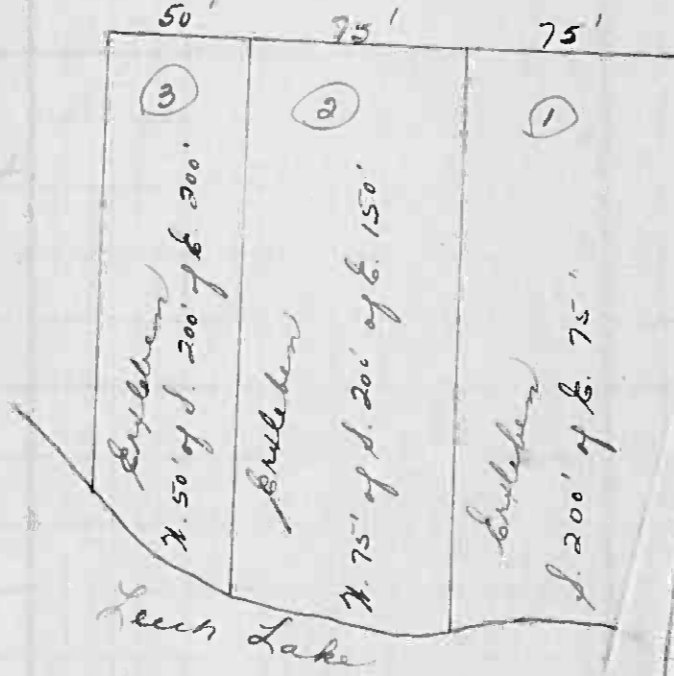 50' 75' 75'
3 2 1
Erxleben
W. 50' of S. 200' of E. 200'
Erxleben
W. 75' of S. 200' of E. 150'
Erxleben
S. 200' of E. 75'
Leech Lake